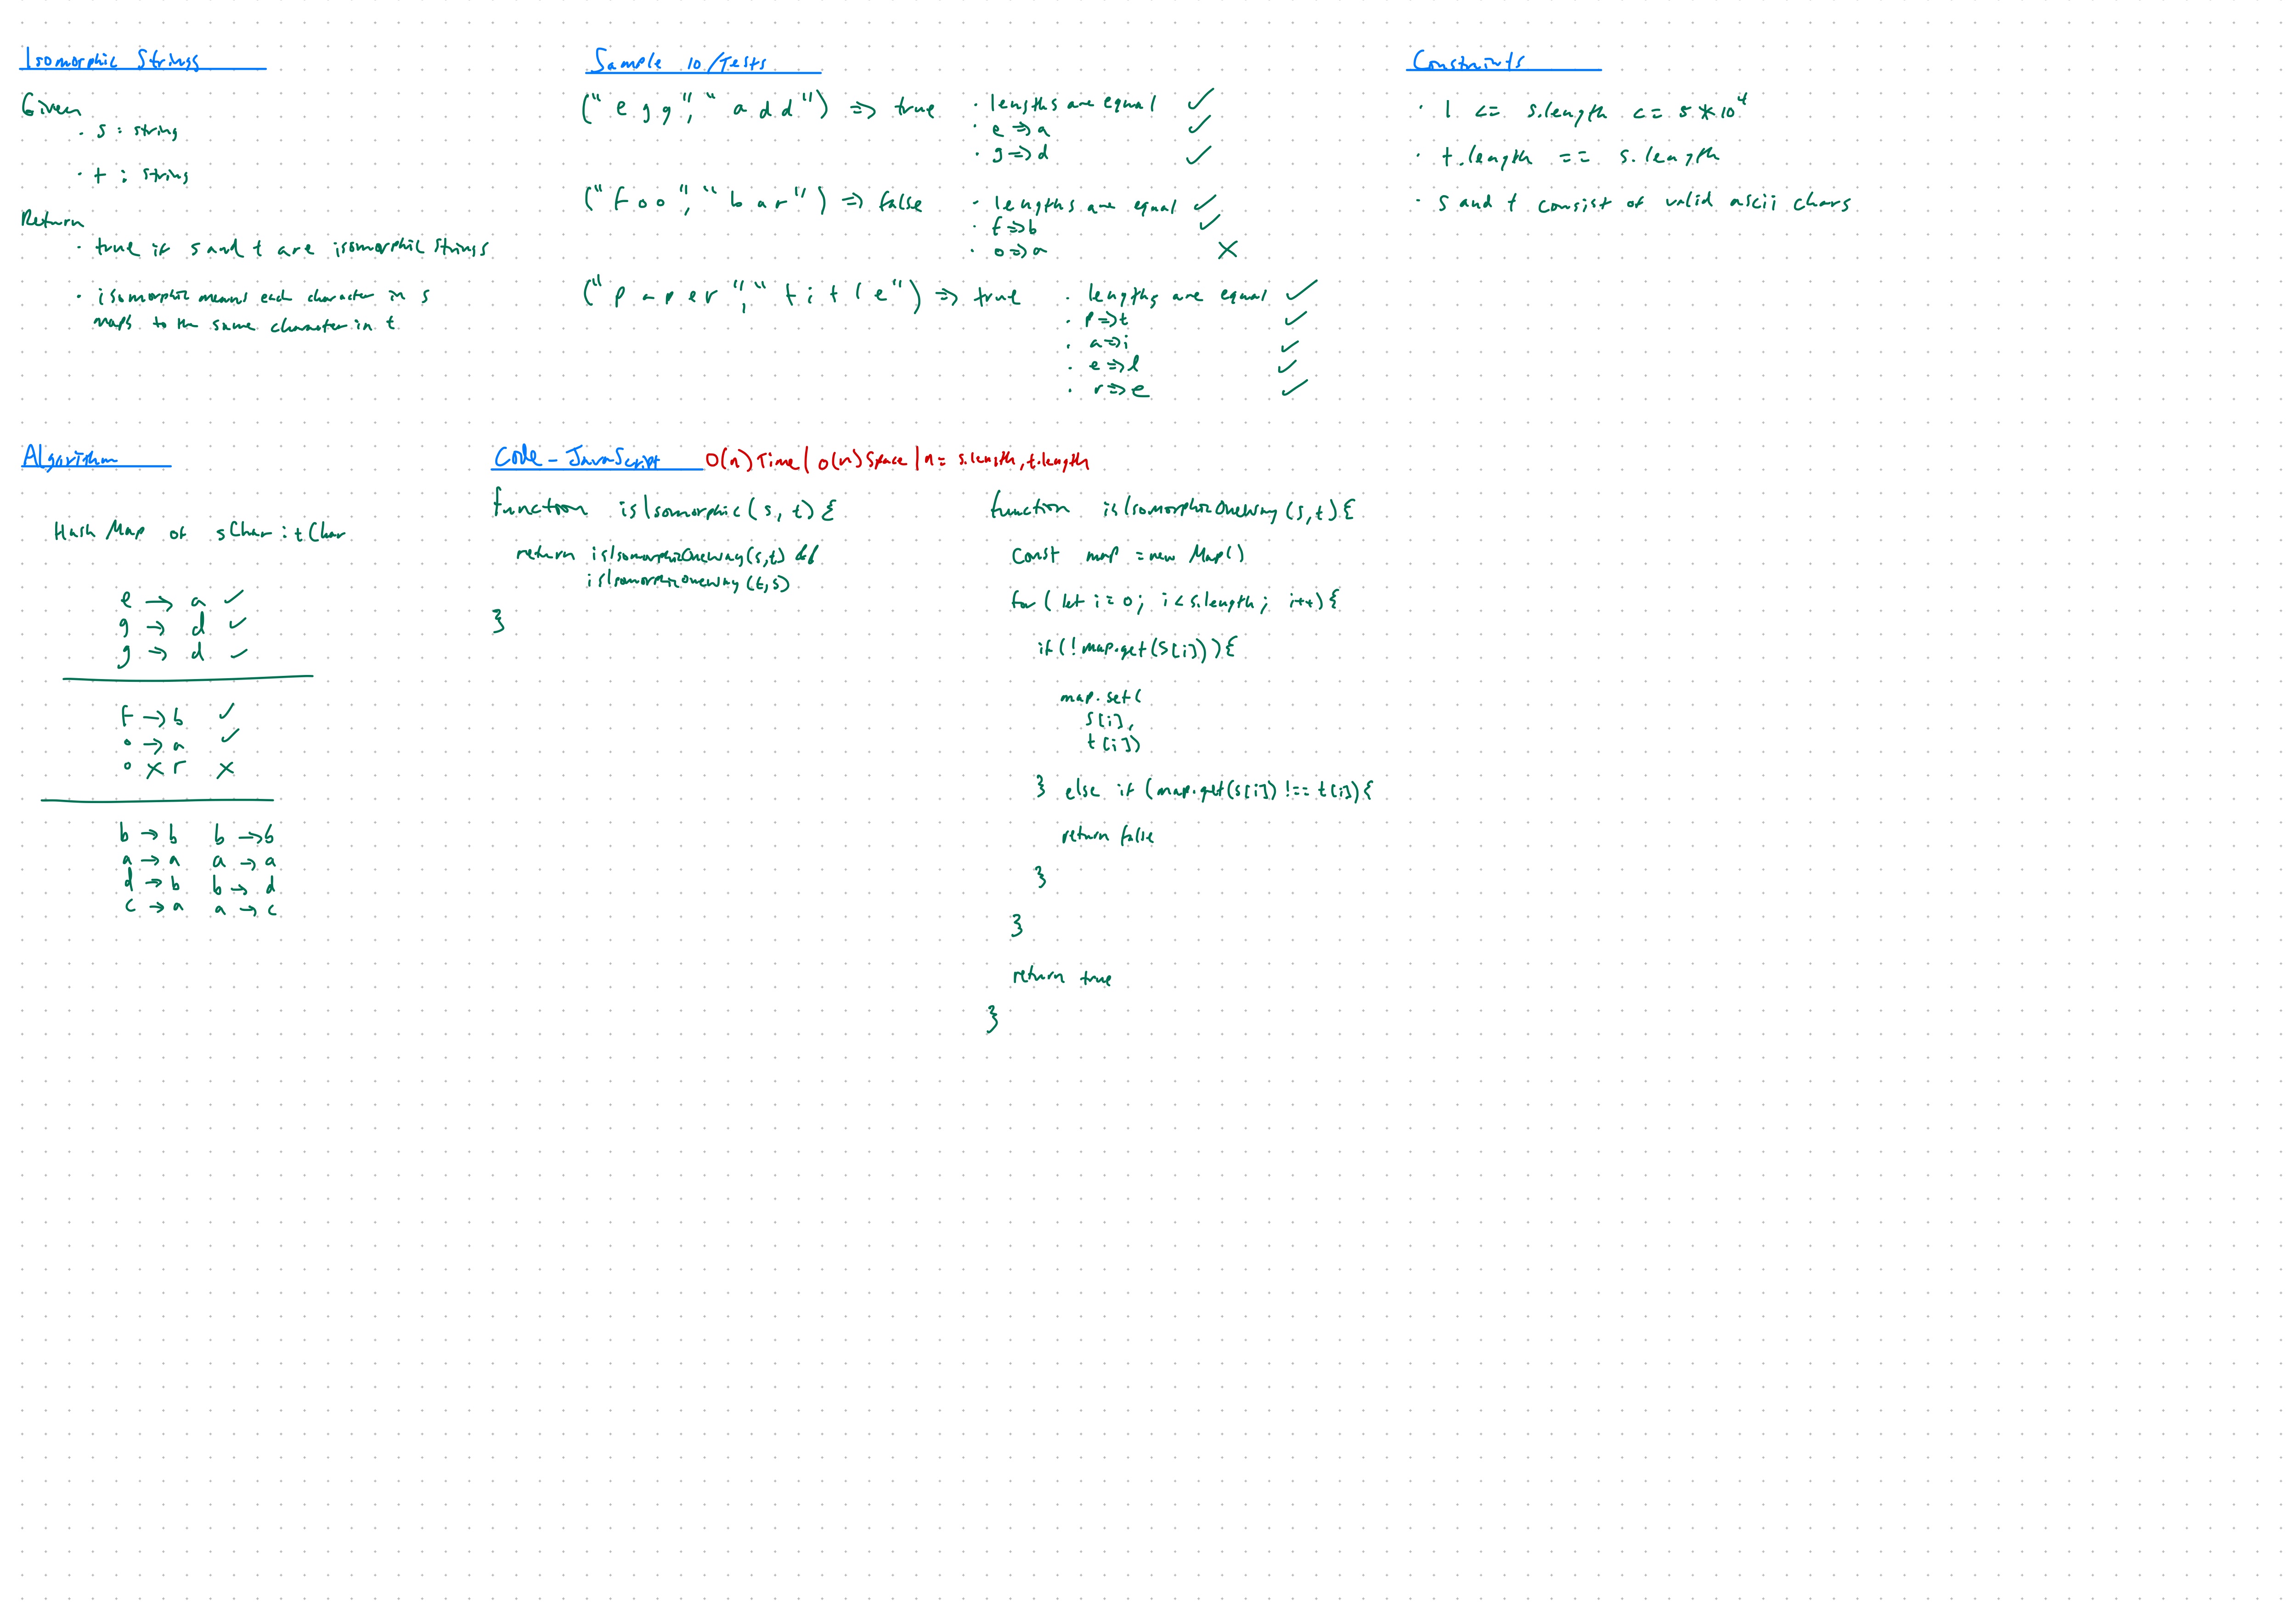 Isomorphic Strings
Given
· s : string
· t : string
Return
· true if s and t are isomorphic strings
· isomorphic means each character in s
maps to the same character in t
Sample IO/Tests
("egg", "add") => true
· lengths are equal ✓
· e => a ✓
· g => d ✓
("foo", "bar") => false
· lengths are equal ✓
· f => b ✓
· o => a ✗
("paper", "title") => true
· lengths are equal ✓
· p => t ✓
· a => i ✓
· e => l ✓
· r => e ✓
Constraints
· 1 <= s.length <= 5 * 10^4
· t.length == s.length
· s and t consist of valid ascii chars
Algorithm
Hash Map of sChar : tChar
e → a ✓
g → d ✓
g → d ✓
f → b ✓
o → a ✓
o ✗ r ✗
b → b b → b
a → a a → a
d → b b → d
c → a a → c
Code - JavaScript O(n) Time | O(n) Space | n = s.length, t.length
function isIsomorphic(s, t) {
return isIsomorphicOneWay(s,t) &&
isIsomorphicOneWay(t,s)
}
function isIsomorphicOneWay(s,t) {
const map = new Map()
for (let i = 0; i < s.length; i++) {
if (!map.get(s[i])) {
map.set(
s[i],
t[i])
} else if (map.get(s[i]) !== t[i]) {
return false
}
}
return true
}